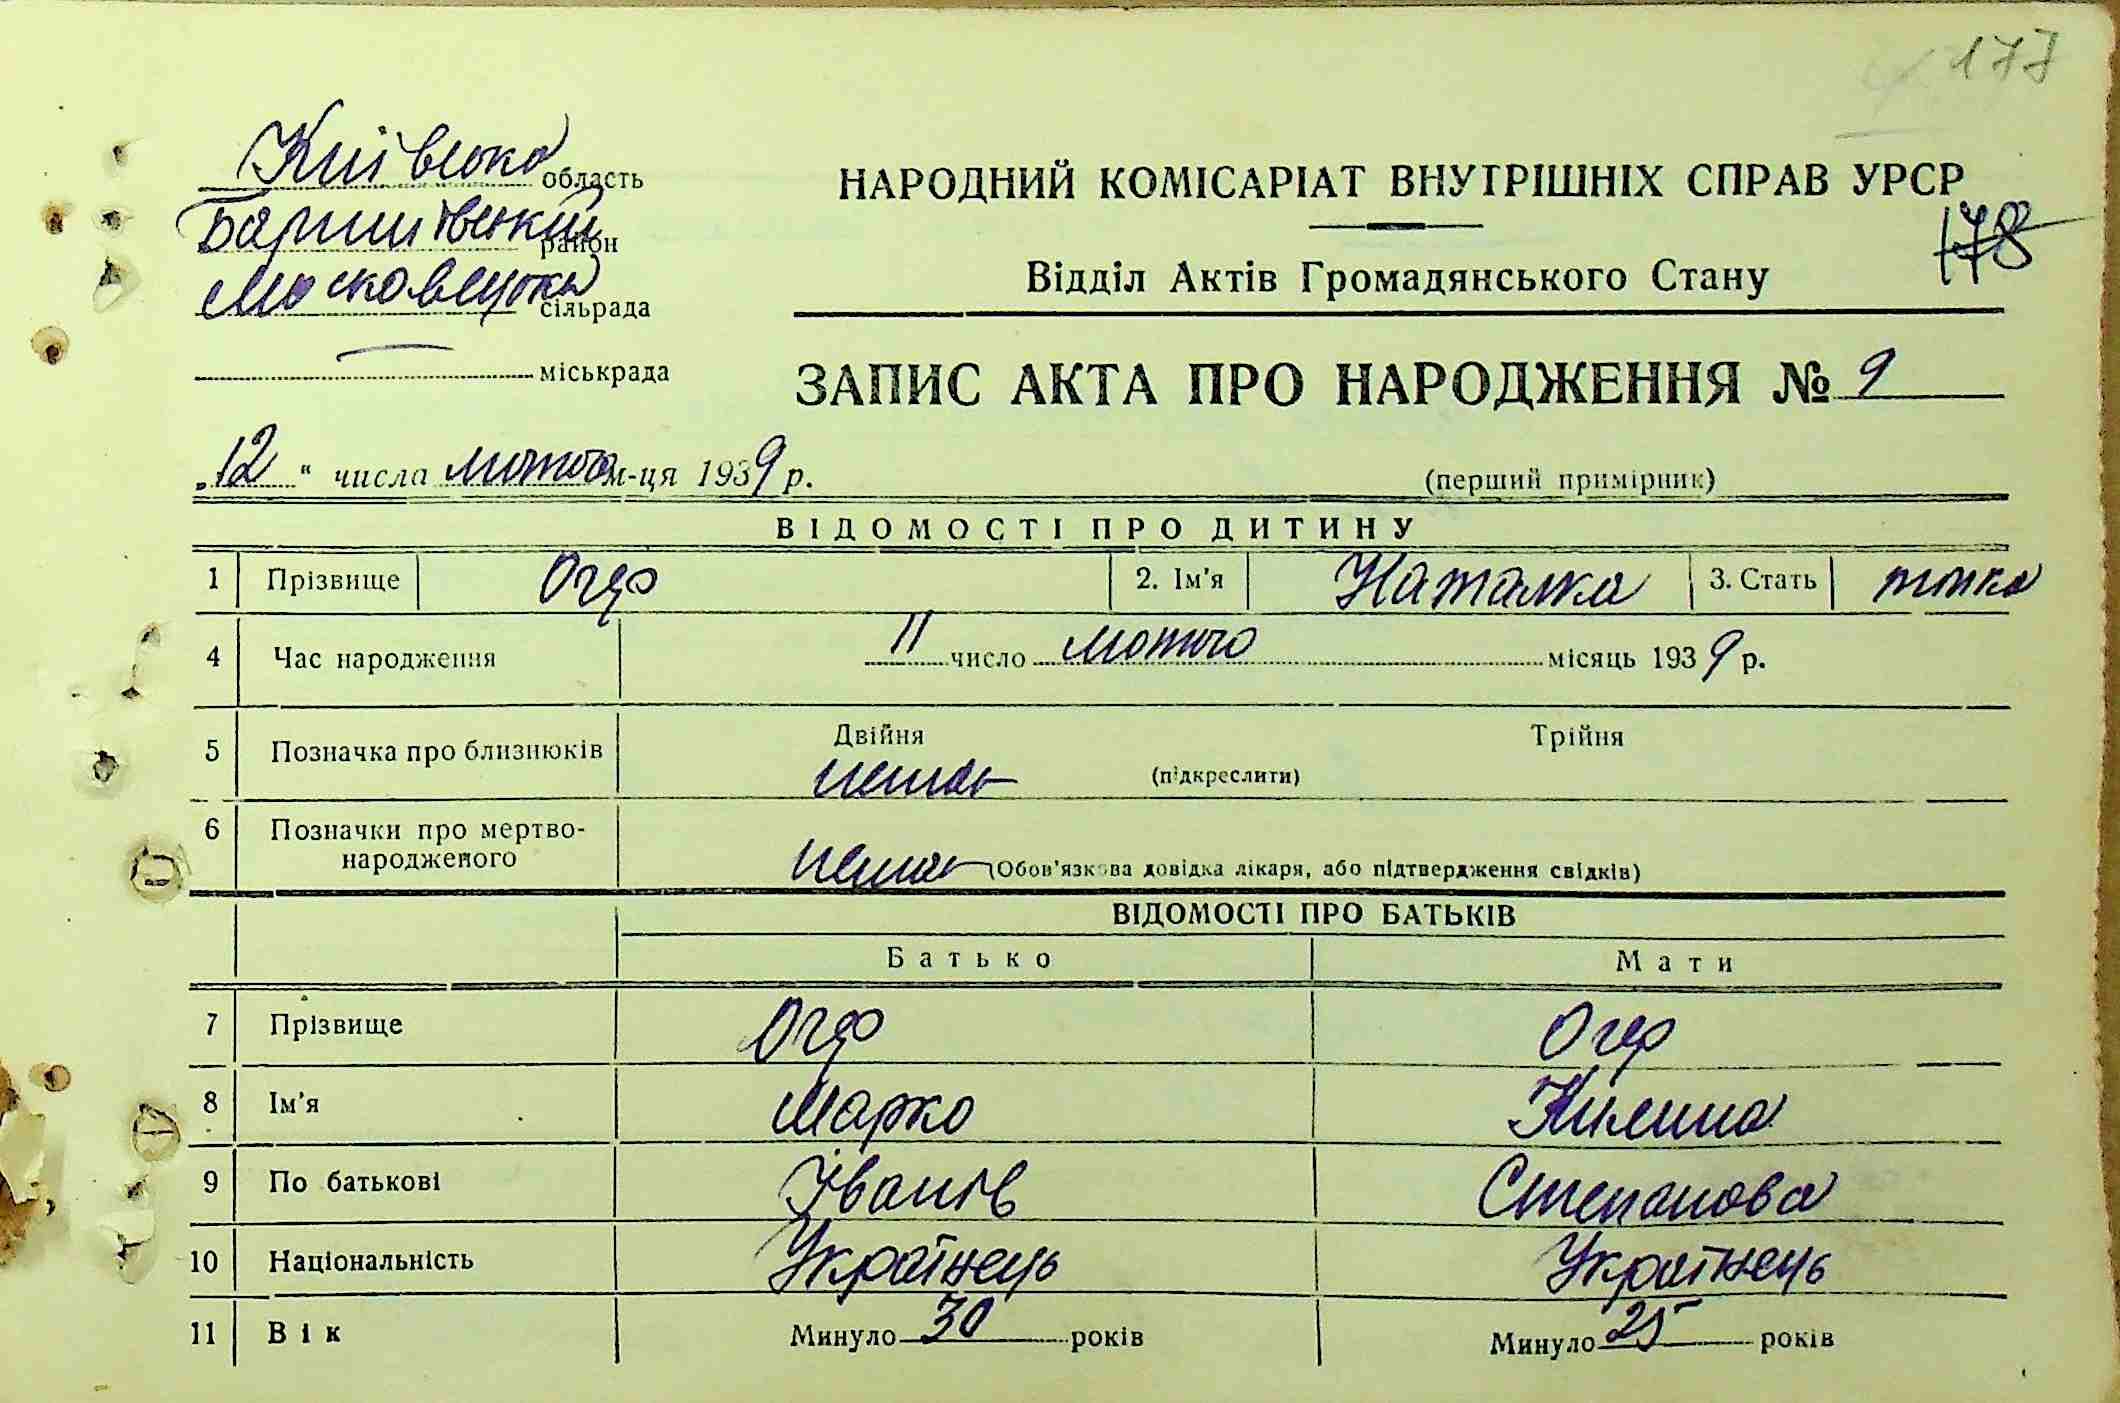 177
Київська область
Баришівський район
Московецька сільрада
міськрада
НАРОДНИЙ КОМІСАРІАТ ВНУТРІШНІХ СПРАВ УРСР
178
Відділ Актів Громадянського Стану
ЗАПИС АКТА ПРО НАРОДЖЕННЯ № 9
„12" числа лютого м-ця 1939 р.
(перший примірник)
ВІДОМОСТІ ПРО ДИТИНУ
1 Прізвище Огер 2. Ім'я Наталка 3. Стать
4 Час народження 11 число лютого місяць 1939 р.
5 Позначка про близнюків Двійня Трійня
немає (підкреслити)
6 Позначки про мертво-
народженого немає (Обов'язкова довідка лікаря, або підтвердження свідків)
ВІДОМОСТІ ПРО БАТЬКІВ
Батько Мати
7 Прізвище Огер Огер
8 Ім'я Марко Килина
9 По батькові Іванів Степанова
10 Національність Українець Українець
11 Вік Минуло 30 років Минуло 25 років